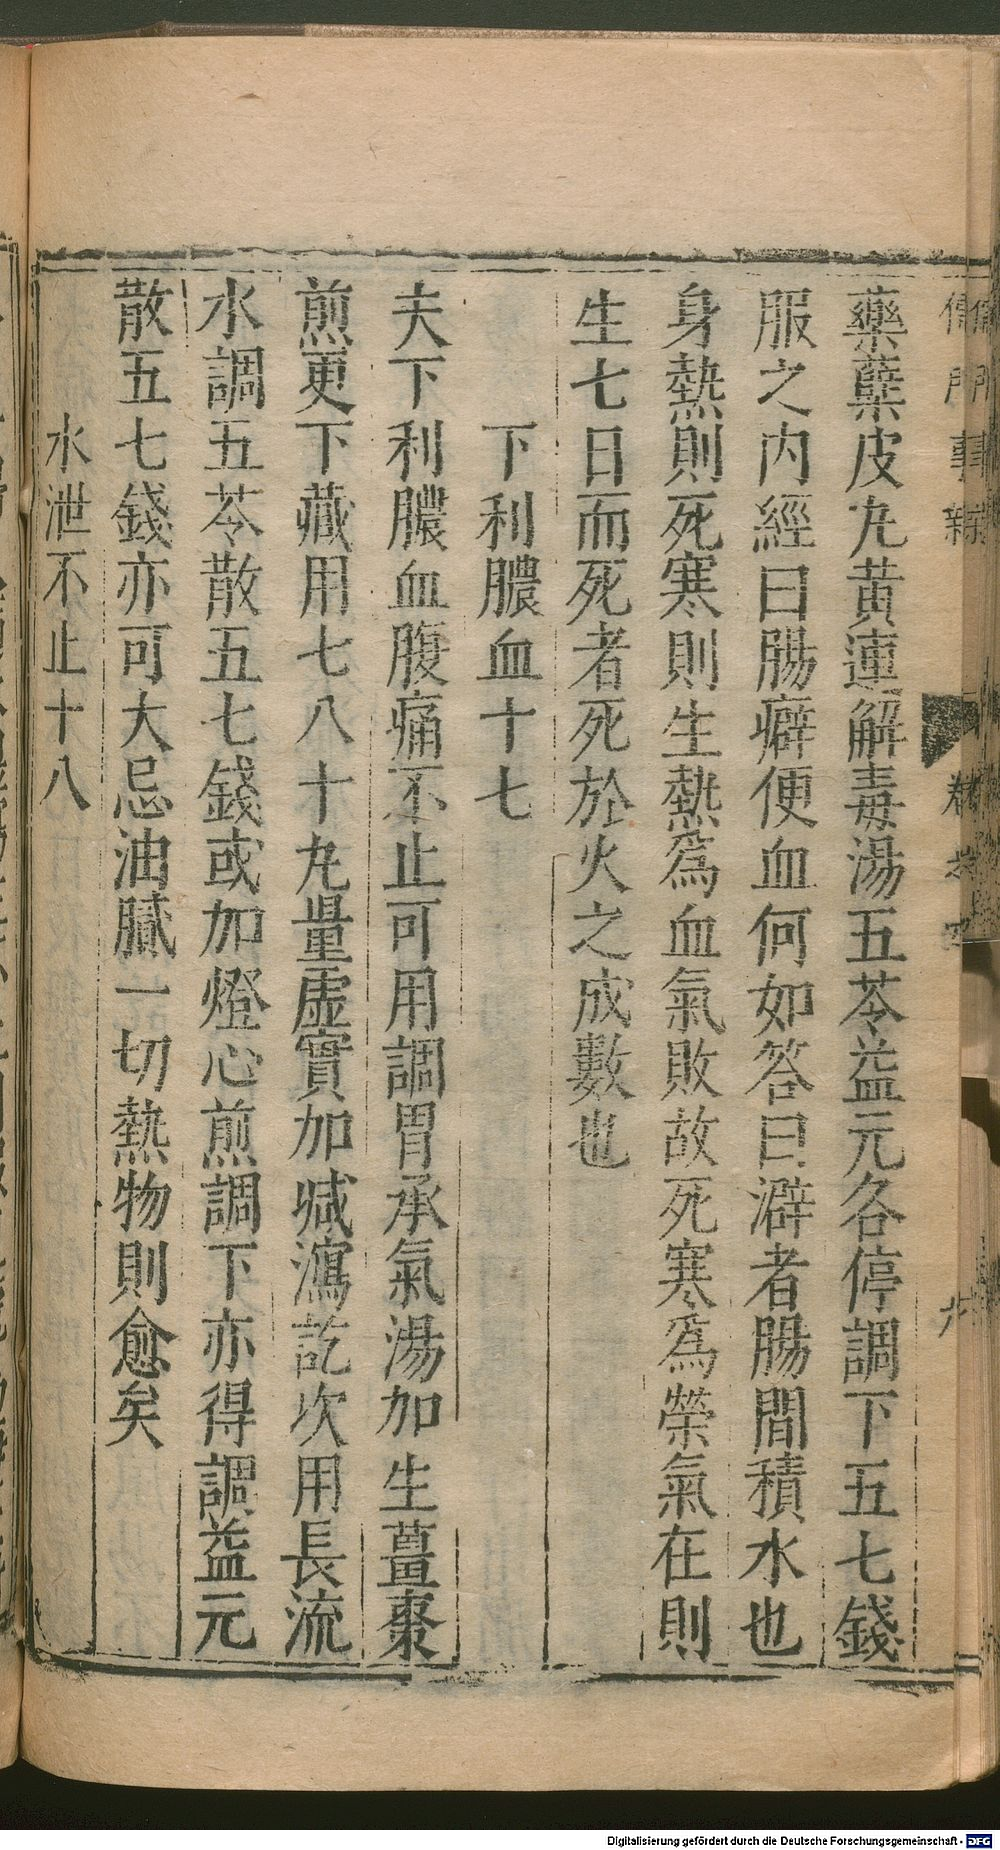 藥蘗皮丸黃連解毒湯五苓益元各停調下五七錢
服之內經曰腸癖便血何如答曰澼者腸間積水也
身熱則死寒則生熱爲血氣敗故死寒爲榮氣在則
生七日而死者死於火之成數也
下利膿血十七
夫下利膿血腹痛不止可用調胃承氣湯加生薑棗
煎更下藏用七八十丸量虛實加減瀉訖次用長流
水調五苓散五七錢或加燈心煎調下亦得調益元
散五七錢亦可大忌油膩一切熱物則愈矣
水泄不止十八
Digitalisierung gefördert durch die Deutsche Forschungsgemeinschaft - DFG